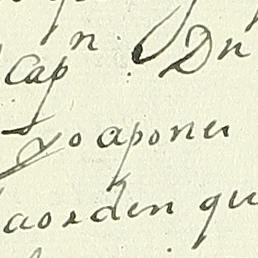 Capn. Dn
yo aponer
laorden qu